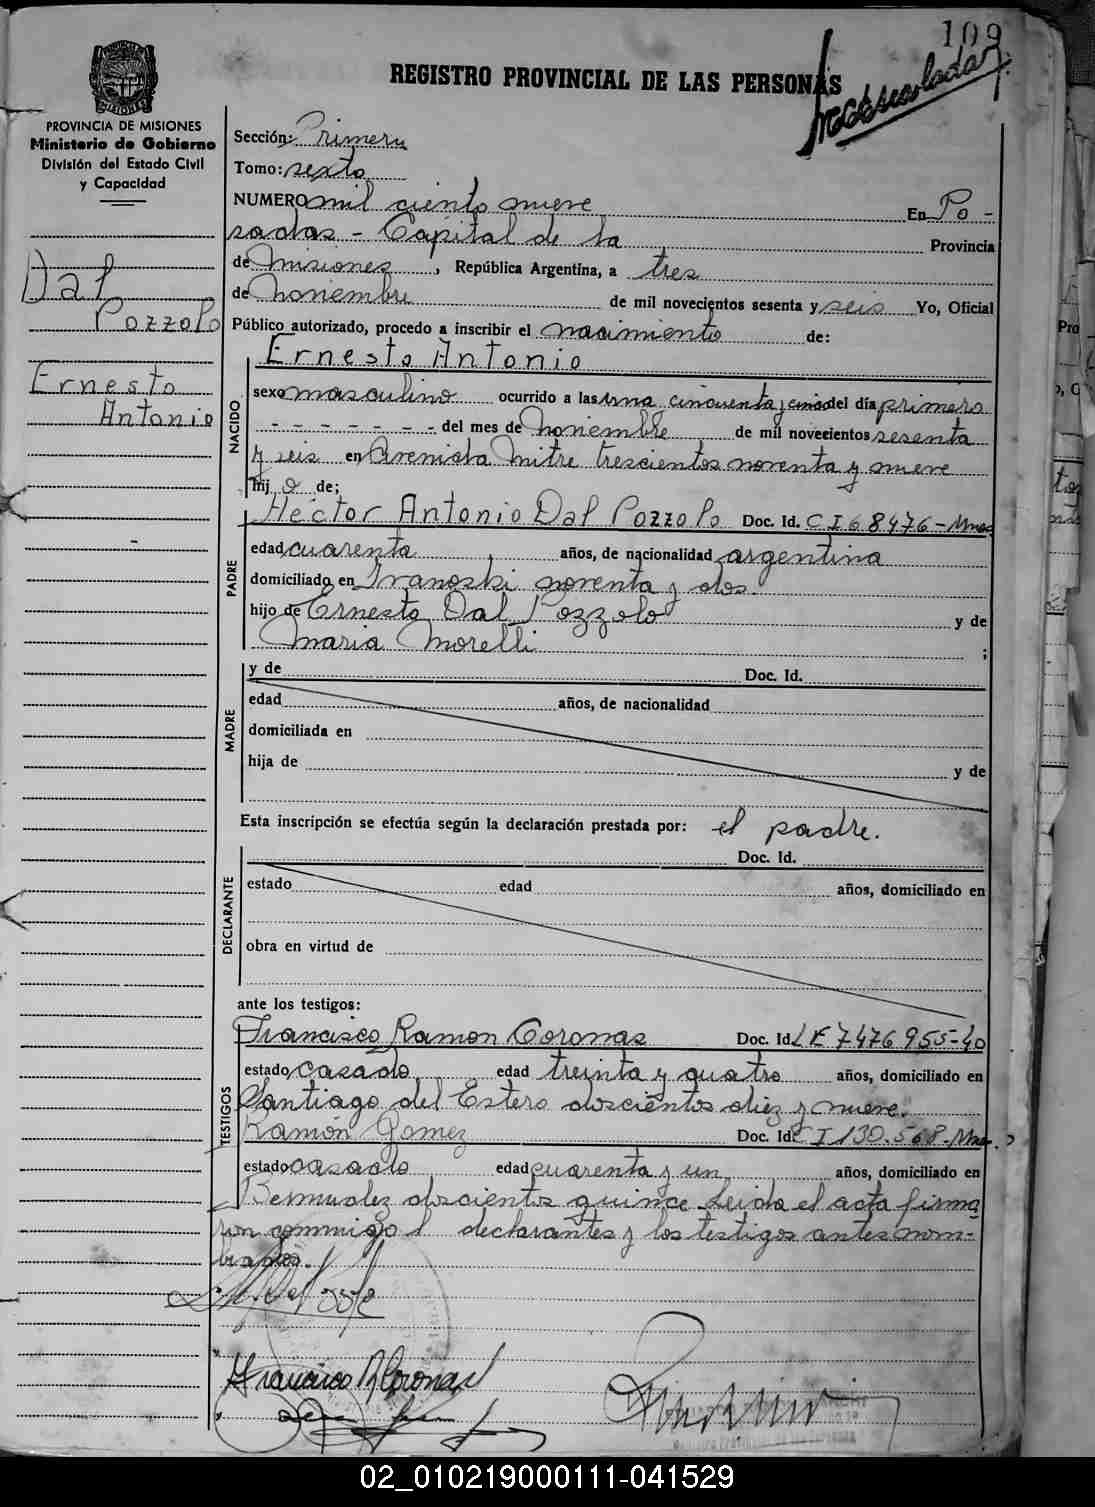 109
REGISTRO PROVINCIAL DE LAS PERSONAS
PROVINCIA DE MISIONES
Ministerio de Gobierno
División del Estado Civil
y Capacidad
Dal
Pozzolo
Ernesto
Antonio
Sección: Primera
Tomo: sexto
NUMERO mil ciento nueve En Po-
sadas - Capital de la Provincia
de Misiones, República Argentina, a tres
de Noviembre de mil novecientos sesenta y seis Yo, Oficial
Público autorizado, procedo a inscribir el nacimiento de:
Ernesto Antonio
NACIDO
sexo masculino ocurrido a las una cincuenta y cinco del día primero
- - - - - - - del mes de Noviembre de mil novecientos sesenta
y seis en Avenida Mitre trescientos noventa y nueve
hijo de;
PADRE
Héctor Antonio Dal Pozzolo Doc. Id. CI 68476-Mnes
edad cuarenta años, de nacionalidad argentina
domiciliado en Ivanoski noventa y dos.
hijo de Ernesto Dal Pozzolo y de
Maria Morelli ;
MADRE
y de Doc. Id.
edad años, de nacionalidad
domiciliada en
hija de y de
Esta inscripción se efectúa según la declaración prestada por: el padre.
DECLARANTE
Doc. Id.
estado edad años, domiciliado en
obra en virtud de
ante los testigos:
TESTIGOS
Francisco Ramon Coronas Doc. Id. LE 7476955-40
estado casado edad treinta y quatro años, domiciliado en
Santiago del Estero doscientos diez y nueve.
Ramón Gomez Doc. Id. CI 130.568-Mnes.
estado casado edad cuarenta y un años, domiciliado en
Bermudez doscientos quince. Leida el acta firma
ron conmigo l declarantes y los testigos antes nom-
brados.
Francisco R Coronas
02_010219000111-041529